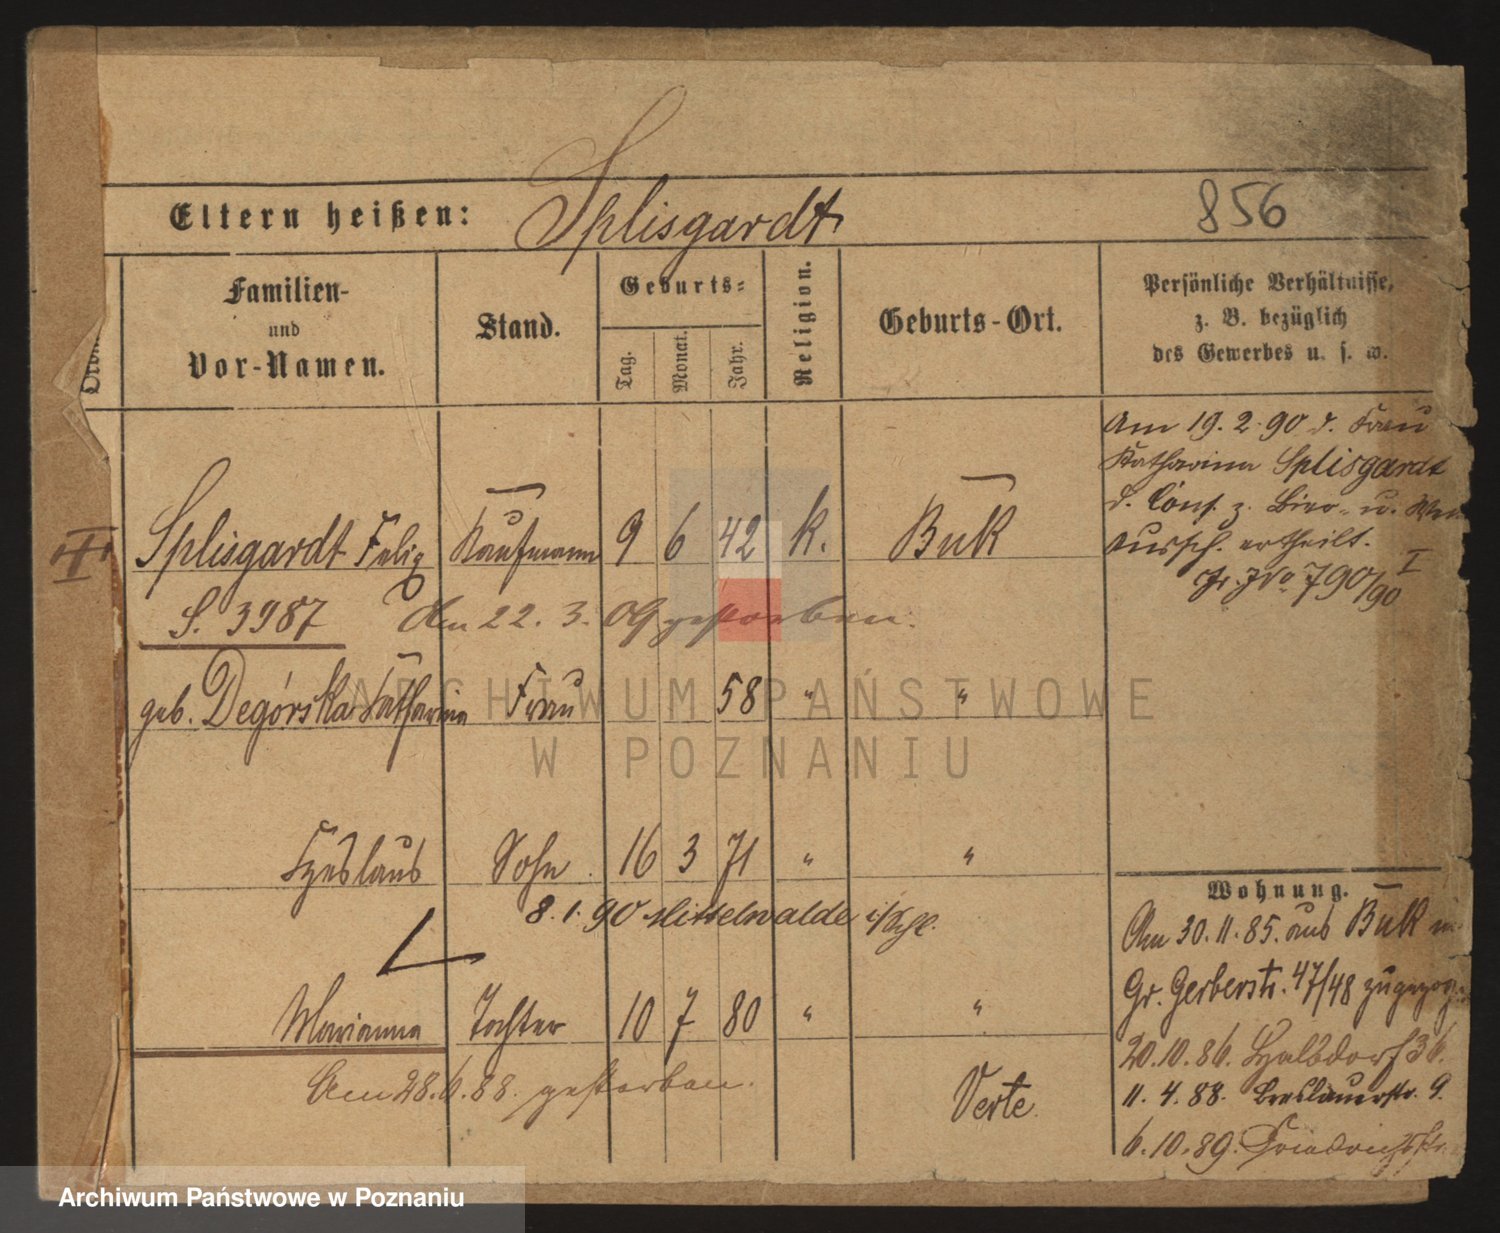 Eltern heißen: Splisgardt 856
Familien- und Vor-Namen.
Stand.
Geburts-
Tag. Monat. Jahr.
Religion.
Geburts-Ort.
Persönliche Verhältnisse,
z. B. bezüglich
des Gewerbes u. s. w.
Am 19. 2. 90 d. Frau
Katharina Splisgardt
d. Cons. z. Bier- u. Wein
Aussch. ertheilt.
Jr. No 790/90 I
III
Splisgardt Felix Kaufmann 9 6 42 k. Buk
S. 3987 Am 22. 3. 09 gestorben.
geb. Degórska Katharina Frau 58 " "
ARCHIWUM PAŃSTWOWE
W POZNANIU
Czeslaus Sohn 16 3 71 " "
8. 1. 90 Mittelwalde i/Schl.
Marianna Tochter 10 7 80 " "
Am 28. 6. 88. gestorben.
Verte.
Wohnung.
Am 30. 11. 85. aus Buk in
Gr. Gerberstr. 47/48 zugezog.
20. 10. 86. Halbdorf 36.
11. 4. 88. Breslauerstr. 9.
6. 10. 89. Friedrichstr.
Archiwum Państwowe w Poznaniu